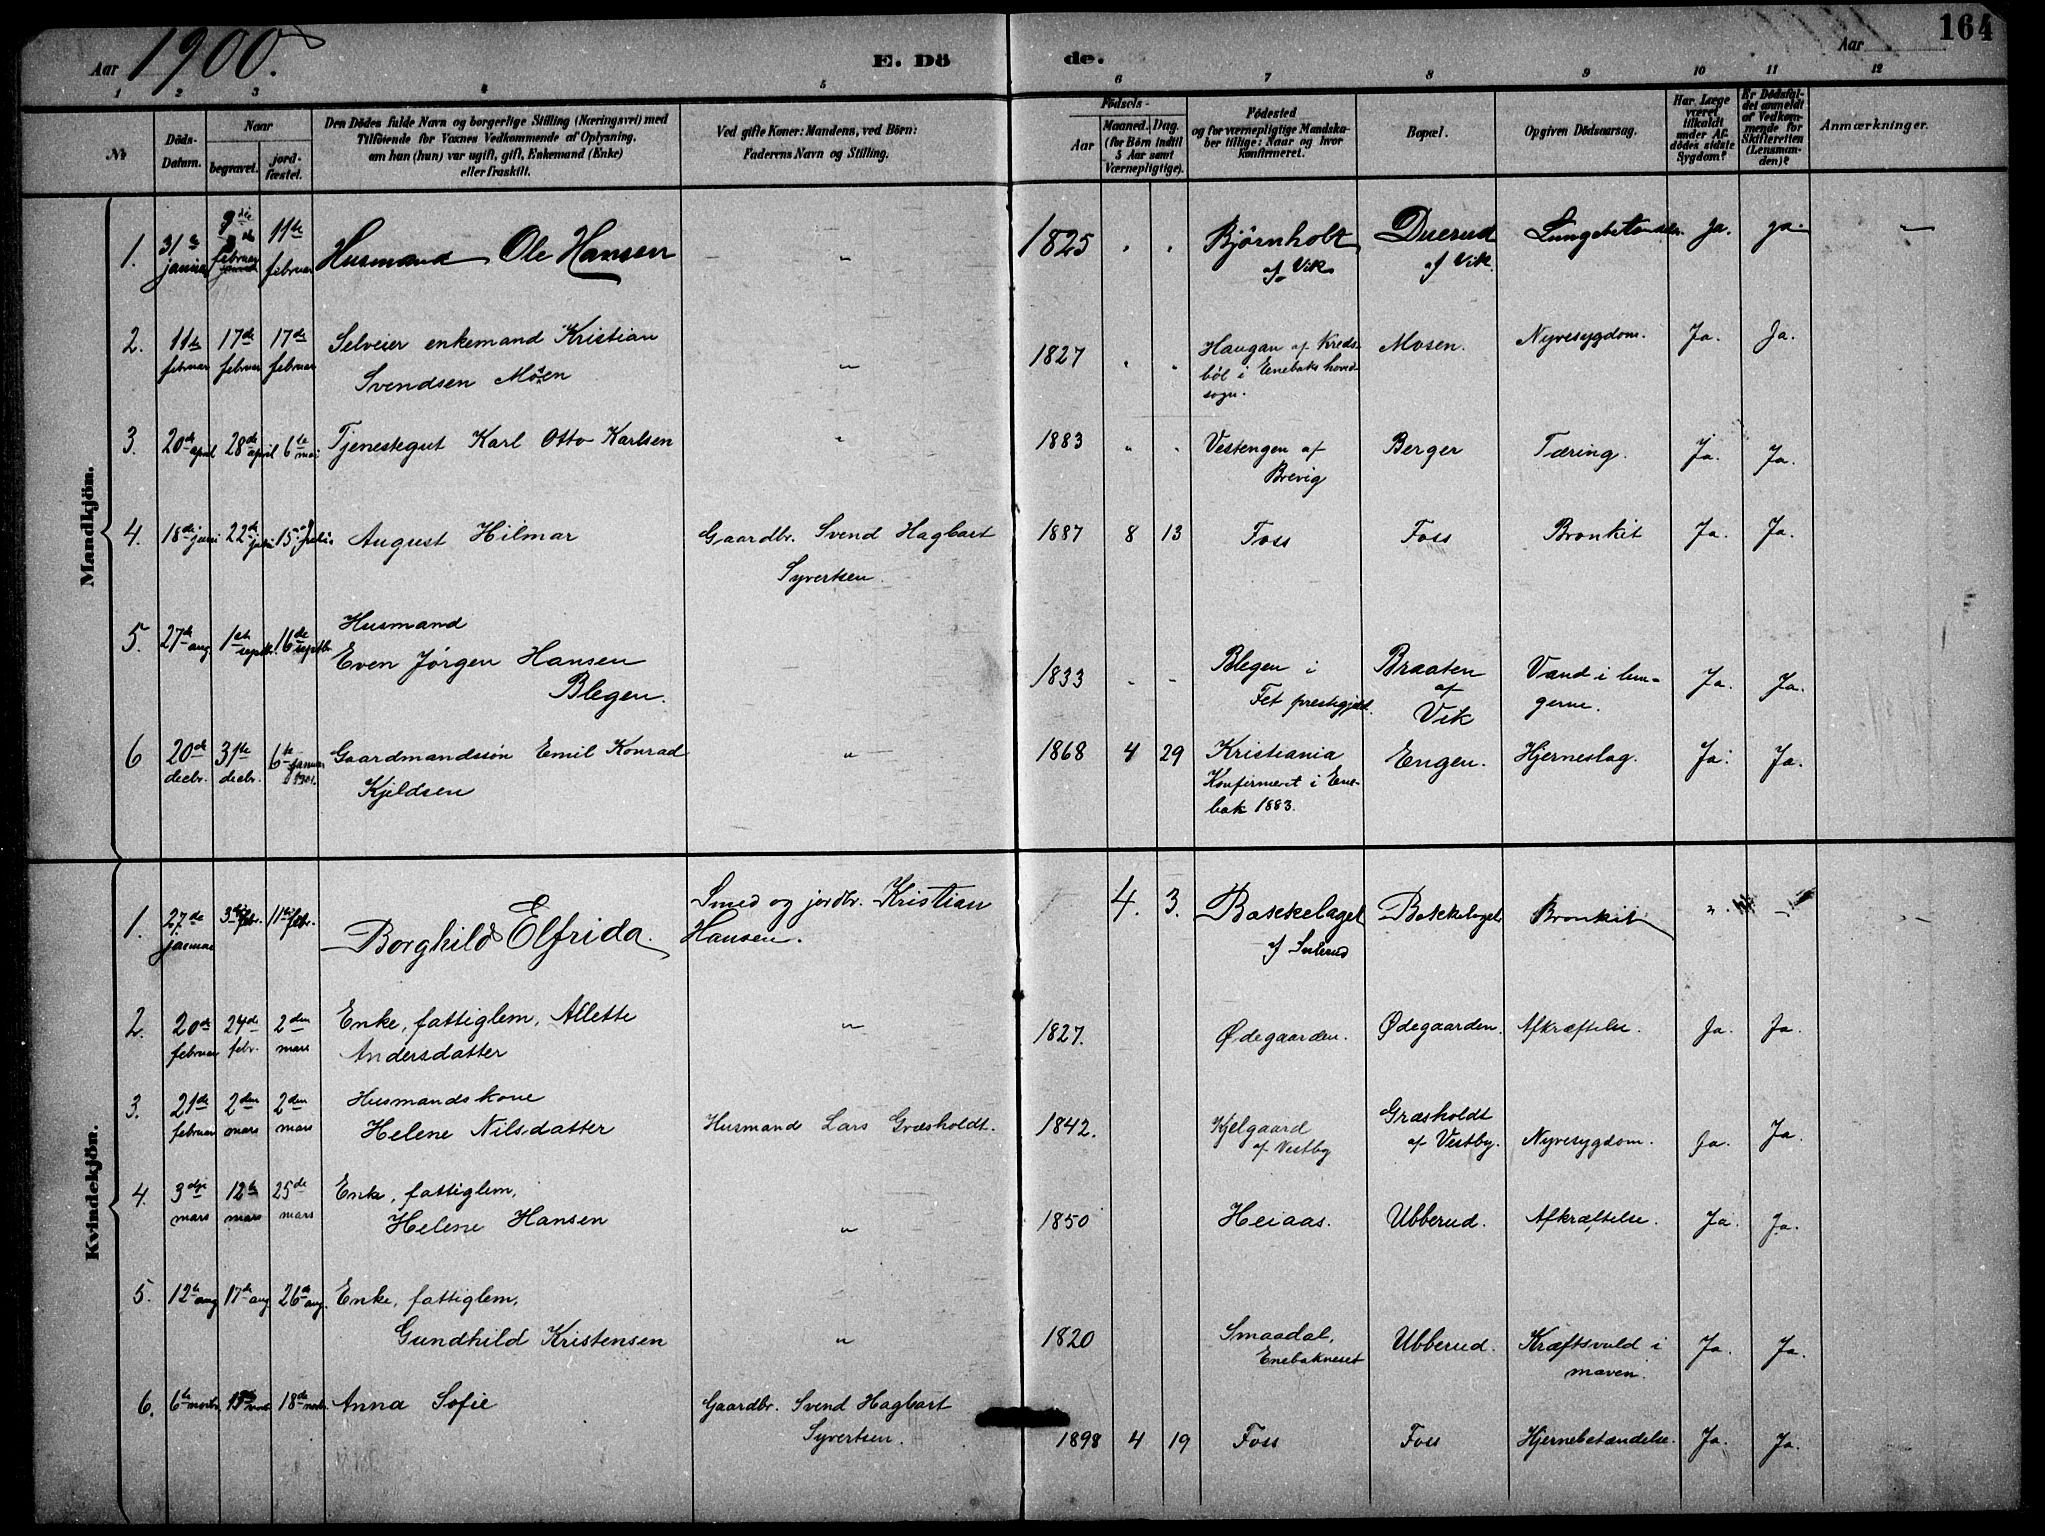 Aar 1900. E. Dö de. Aar 164
1 2 3 4 5 6 7 8 9 10 11 12
No
Döds-Datum.
Naar
begravet.
jord-fæstet.
Den Dödes fulde Navn og borgerlige Stilling (Næringsvei) med
Tilföiende for Voxnes Vedkommende af Oplysning,
om han (hun) var ugift, gift, Enkemand (Enke)
eller fraskilt.
Ved gifte Koner: Mandens, ved Börn:
Faderens Navn og Stilling.
Födsels-
Aar
Maaned. Dag.
(for Börn indtil
5 Aar samt
Værnepligtige).
Födested
og for værnepligtige Mandska-
ber tillige: Naar og hvor
konfirmeret.
Bopæl.
Opgiven Dödsaarsag.
Har Læge
været
tilkaldt
under Af-
dödes sidste
Sygdom?
Er Dödsfal-
det anmeldt
af Vedkom-
mende for
Skifteretten
(Lensman-
den)?
Anmærkninger.
Mandkjön.
1. 31te januar februar 11te februar Husmand Ole Hansen „ 1825 Bjørnholt Duerud Ja. ja.
af Vik af Vik.
2. 11te februar 17de februar 17de februar Selveier enkemand Kristian „ 1827 Haugan af Kreds- Mosen. Nyresygdom. Ja. Ja.
Svendsen Moen böl i Enebaks hoved-
sogn.
3. 20de april 28de april 6te mai Tjenestegut Karl Otto Karlsen „ 1883 Vestengen af Berger Tæring. Ja. Ja.
Brevig
4. 18de juni 22de juni 15 August Hilmar Gaardbr. Svend Hagbart 1887 8 13 Foss Foss Bronkit Ja. Ja.
Syvertsen.
5. 27de aug 1ste septbr. 16de septbr. Husmand
Even Jörgen Hansen 1833 Blegen i Braaten Vand i lun- Ja. Ja.
Blegen. Fet prestegjeld. af Vik gerne.
6 20de decbr. 31te decbr. 6te januar 1901. Gaardmandssön Emil Konrad „ 1868 4 29 Kristiania Engen. Hjerneslag. Ja. Ja.
Kjeldsen Konfirmeret i Ene-
bak 1883.
Kvindekjön.
1. 27de januar 3die febr. 11te febr. Borghild Elfrida. Smed og jordbr. Kristian 4. 3. Bakkelaget Bakkelaget Bronkit „
Hansen. af
2. 20de februar 24de febr. 2den mars Enke, fattiglem, Allette „ 1827. Ødegaarden. Ødegaarden. Afkræftelse. Ja. Ja.
Andersdatter
3. 21de februar 2den mars 2den mars Husmandskone
Helene Nilsdatter Husmand Lars Græsholdt. 1842. Kjelgaard Græsholdt Nyresygdom. Ja. Ja.
af Vestby af Vestby.
4. 3dje mars 12te mars 25de mars Enke, fattiglem,
Helene Hansen „ 1850 Heiaas. Ubberud. Afkræftelse. Ja. Ja.
5. 12te aug 17de aug 26de aug. Enke, fattiglem,
Gundhild Kristensen „ 1820 Smaadal, Ubberud. Kræftsvuld i Ja. Ja.
Enebakneset maven.
6. 6te novbr. 18de novbr. Anna Sofie Gaardbr. Svend Hagbart
Syvertsen. 1898 4 19 Foss Foss Hjernebetændelse. Ja. Ja.